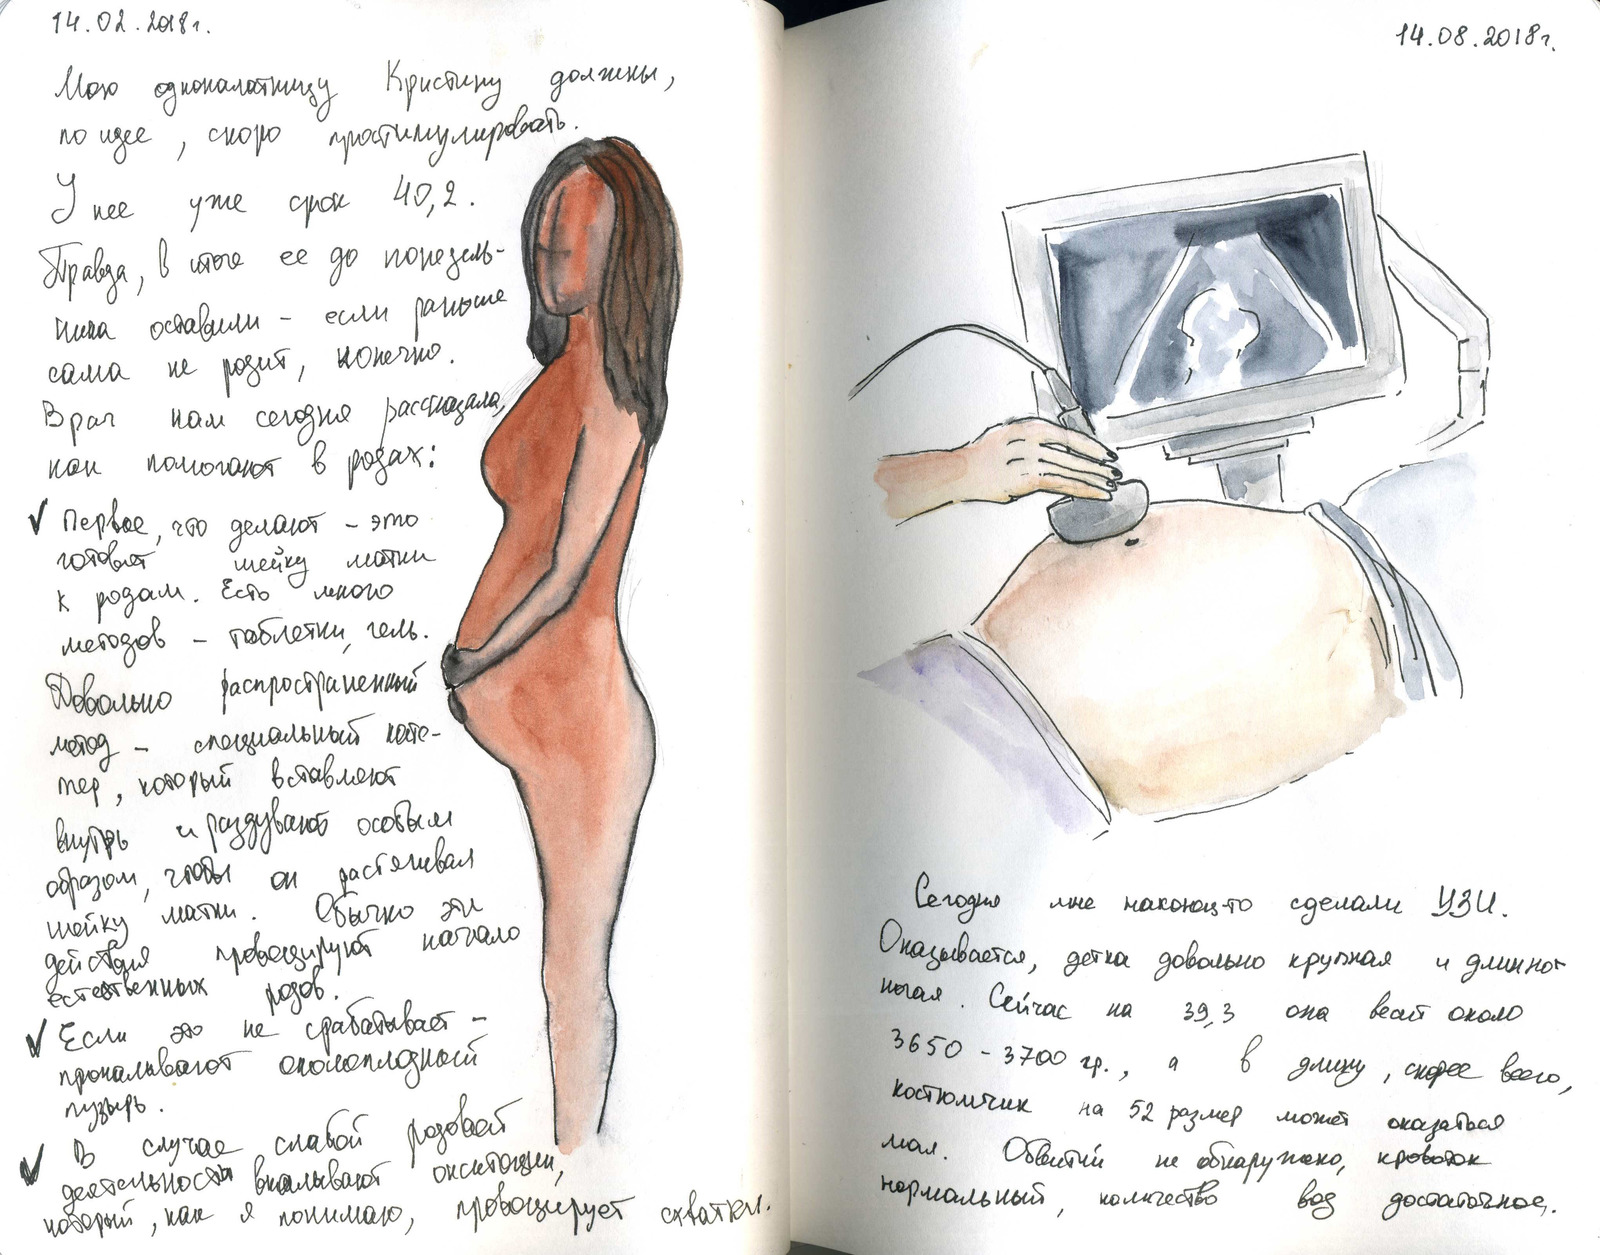 14.02.2018г.
Мою однопалатницу Кристину должны,
по идее, скоро простимулировать.
У нее уже срок 40,2.
Правда, в итоге ее до понедель-
ника оставили - если раньше
сама не родит, конечно.
Врач нам сегодня рассказала,
как помогают в родах:
✓ Первое, что делают - это
готовят шейку матки
к родам. Есть много
методов - таблетки, гель.
Довольно распространенный
метод - специальный кате-
тер, который вставляют
внутрь и раздувают особым
образом, чтобы он растягивал
шейку матки. Обычно эти
действия провоцируют начало
естественных родов.
✓ Если это не срабатывает -
прокалывают околоплодный
пузырь.
✓ В случае слабой родовой
деятельности вкалывают окситоцин,
который, как я понимаю, провоцирует схватки.
14.08.2018г.
Сегодня мне наконец-то сделали УЗИ.
Оказывается, детка довольно крупная и длинног
ногая. Сейчас на 39,3 она весит около
3650 - 3700 гр., а в длину, скорее всего,
костюмчик на 52 размер может оказаться
мал. Обвитий не обнаружено, кровоток
нормальный, количество вод достаточное.